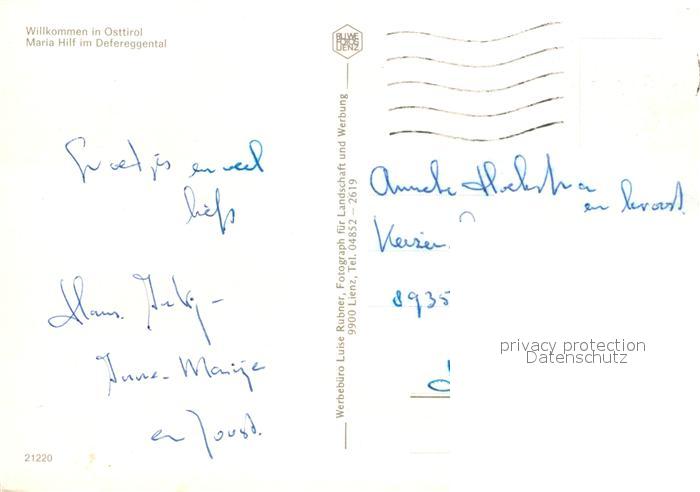 Willkommen in Osttirol
Maria Hilf im Defereggental
Groetjes en veel
liefs
Hans,
Anne-Marije
en Joost.
21220
Werbebüro Luise Rubner, Fotograph für Landschaft und Werbung
9900 Lienz, Tel. 04852 – 2619
FOTOS
LIENZ
Anneke Hoekstra
en kroost.
Keizer
8935
privacy protection
Datenschutz